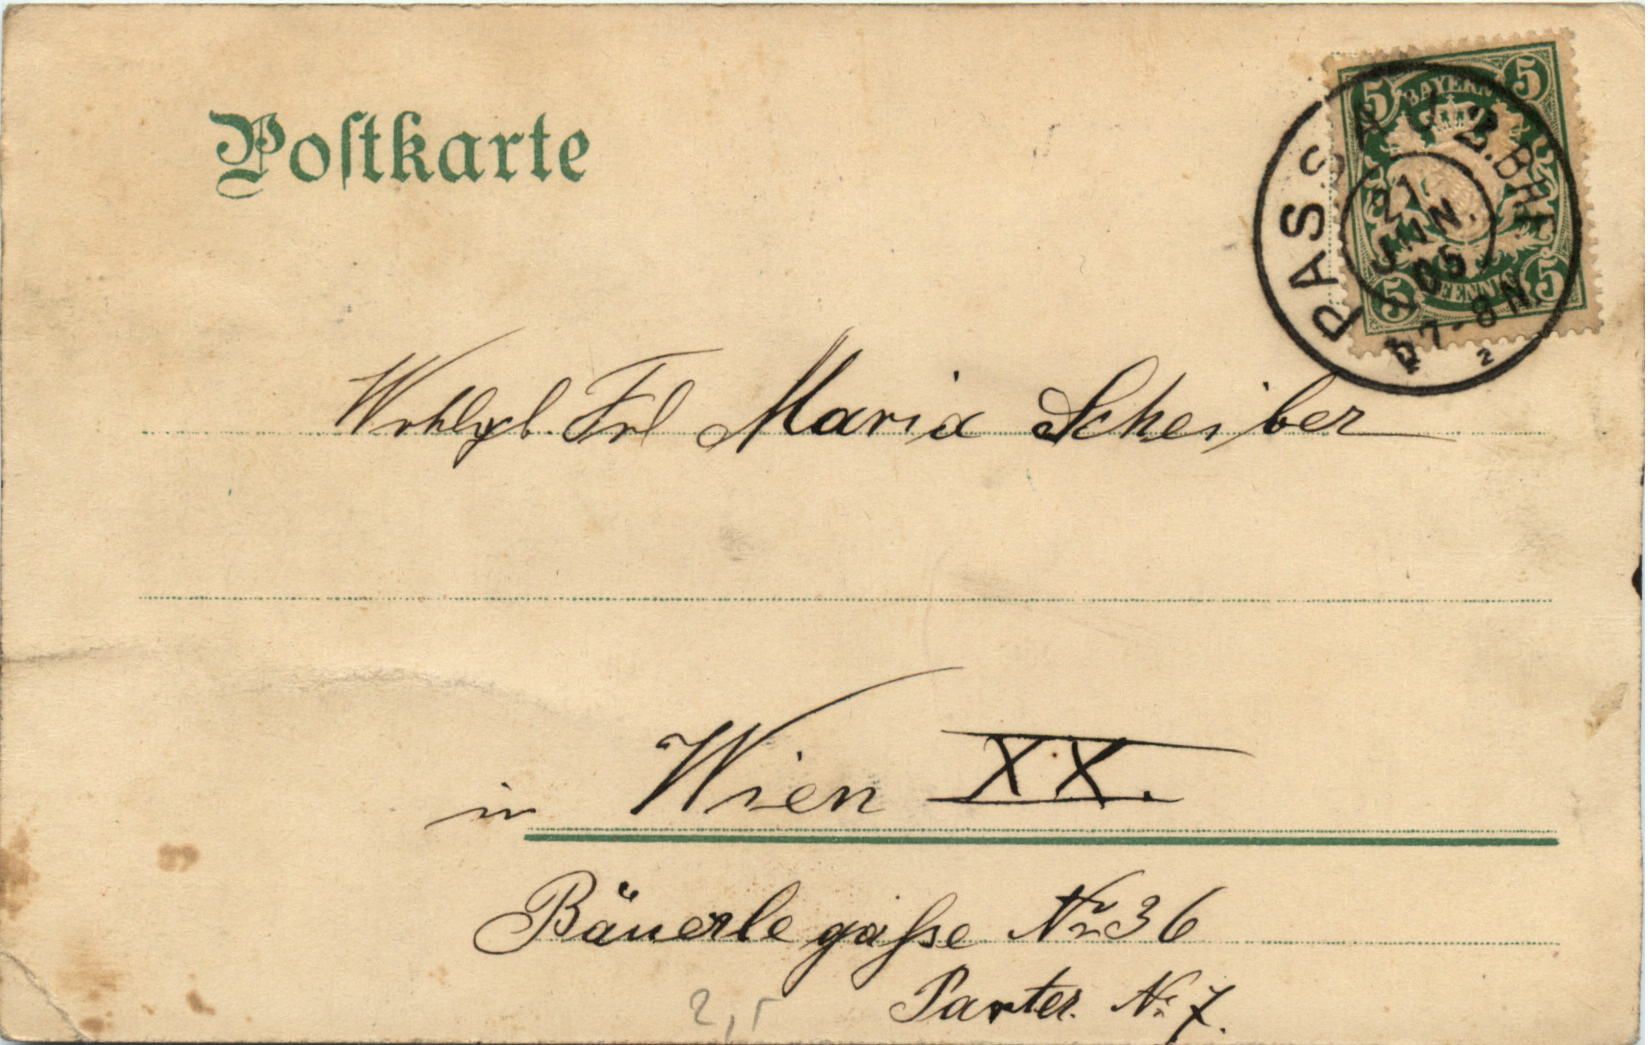 Postkarte
BAYERN
5 5
5 5
PFENNIG
PASSAU 2. BHF.
21.
JUN.
05
N 7-8 N.
2 2
Wohlgb. Frl Maria Scheiber
in Wien XX.
Bäuerlegasse Nr 36
Parter. Nr. 7.